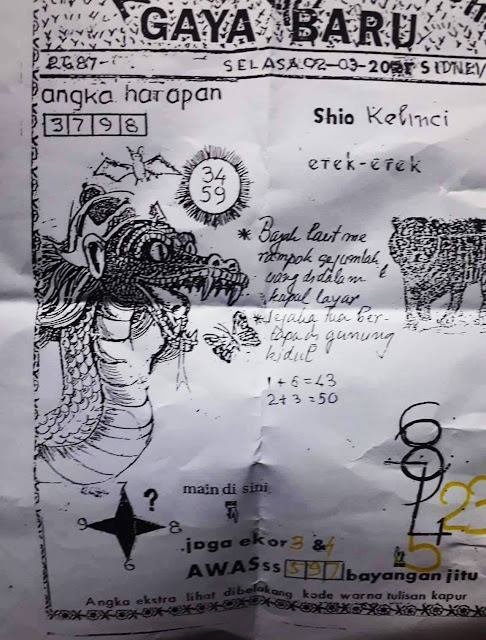 GAYA BARU
SELASA 02-03-2021 SIDNEY
angka harapan
3798
Shio Kelinci
erek-erek
34
59
* Bajak laut me
rampok sejumlah
uang di dalam
kapal layar
*
tapa di gunung
kidul
1+6=43
2+3=50
7
?
9
8
6
main di sini
jaga ekor 3 & 4
AWASss 597 bayangan jitu
6
9
7
4
23
5
Angka ekstra lihat dibelakang kode warna tulisan kapur